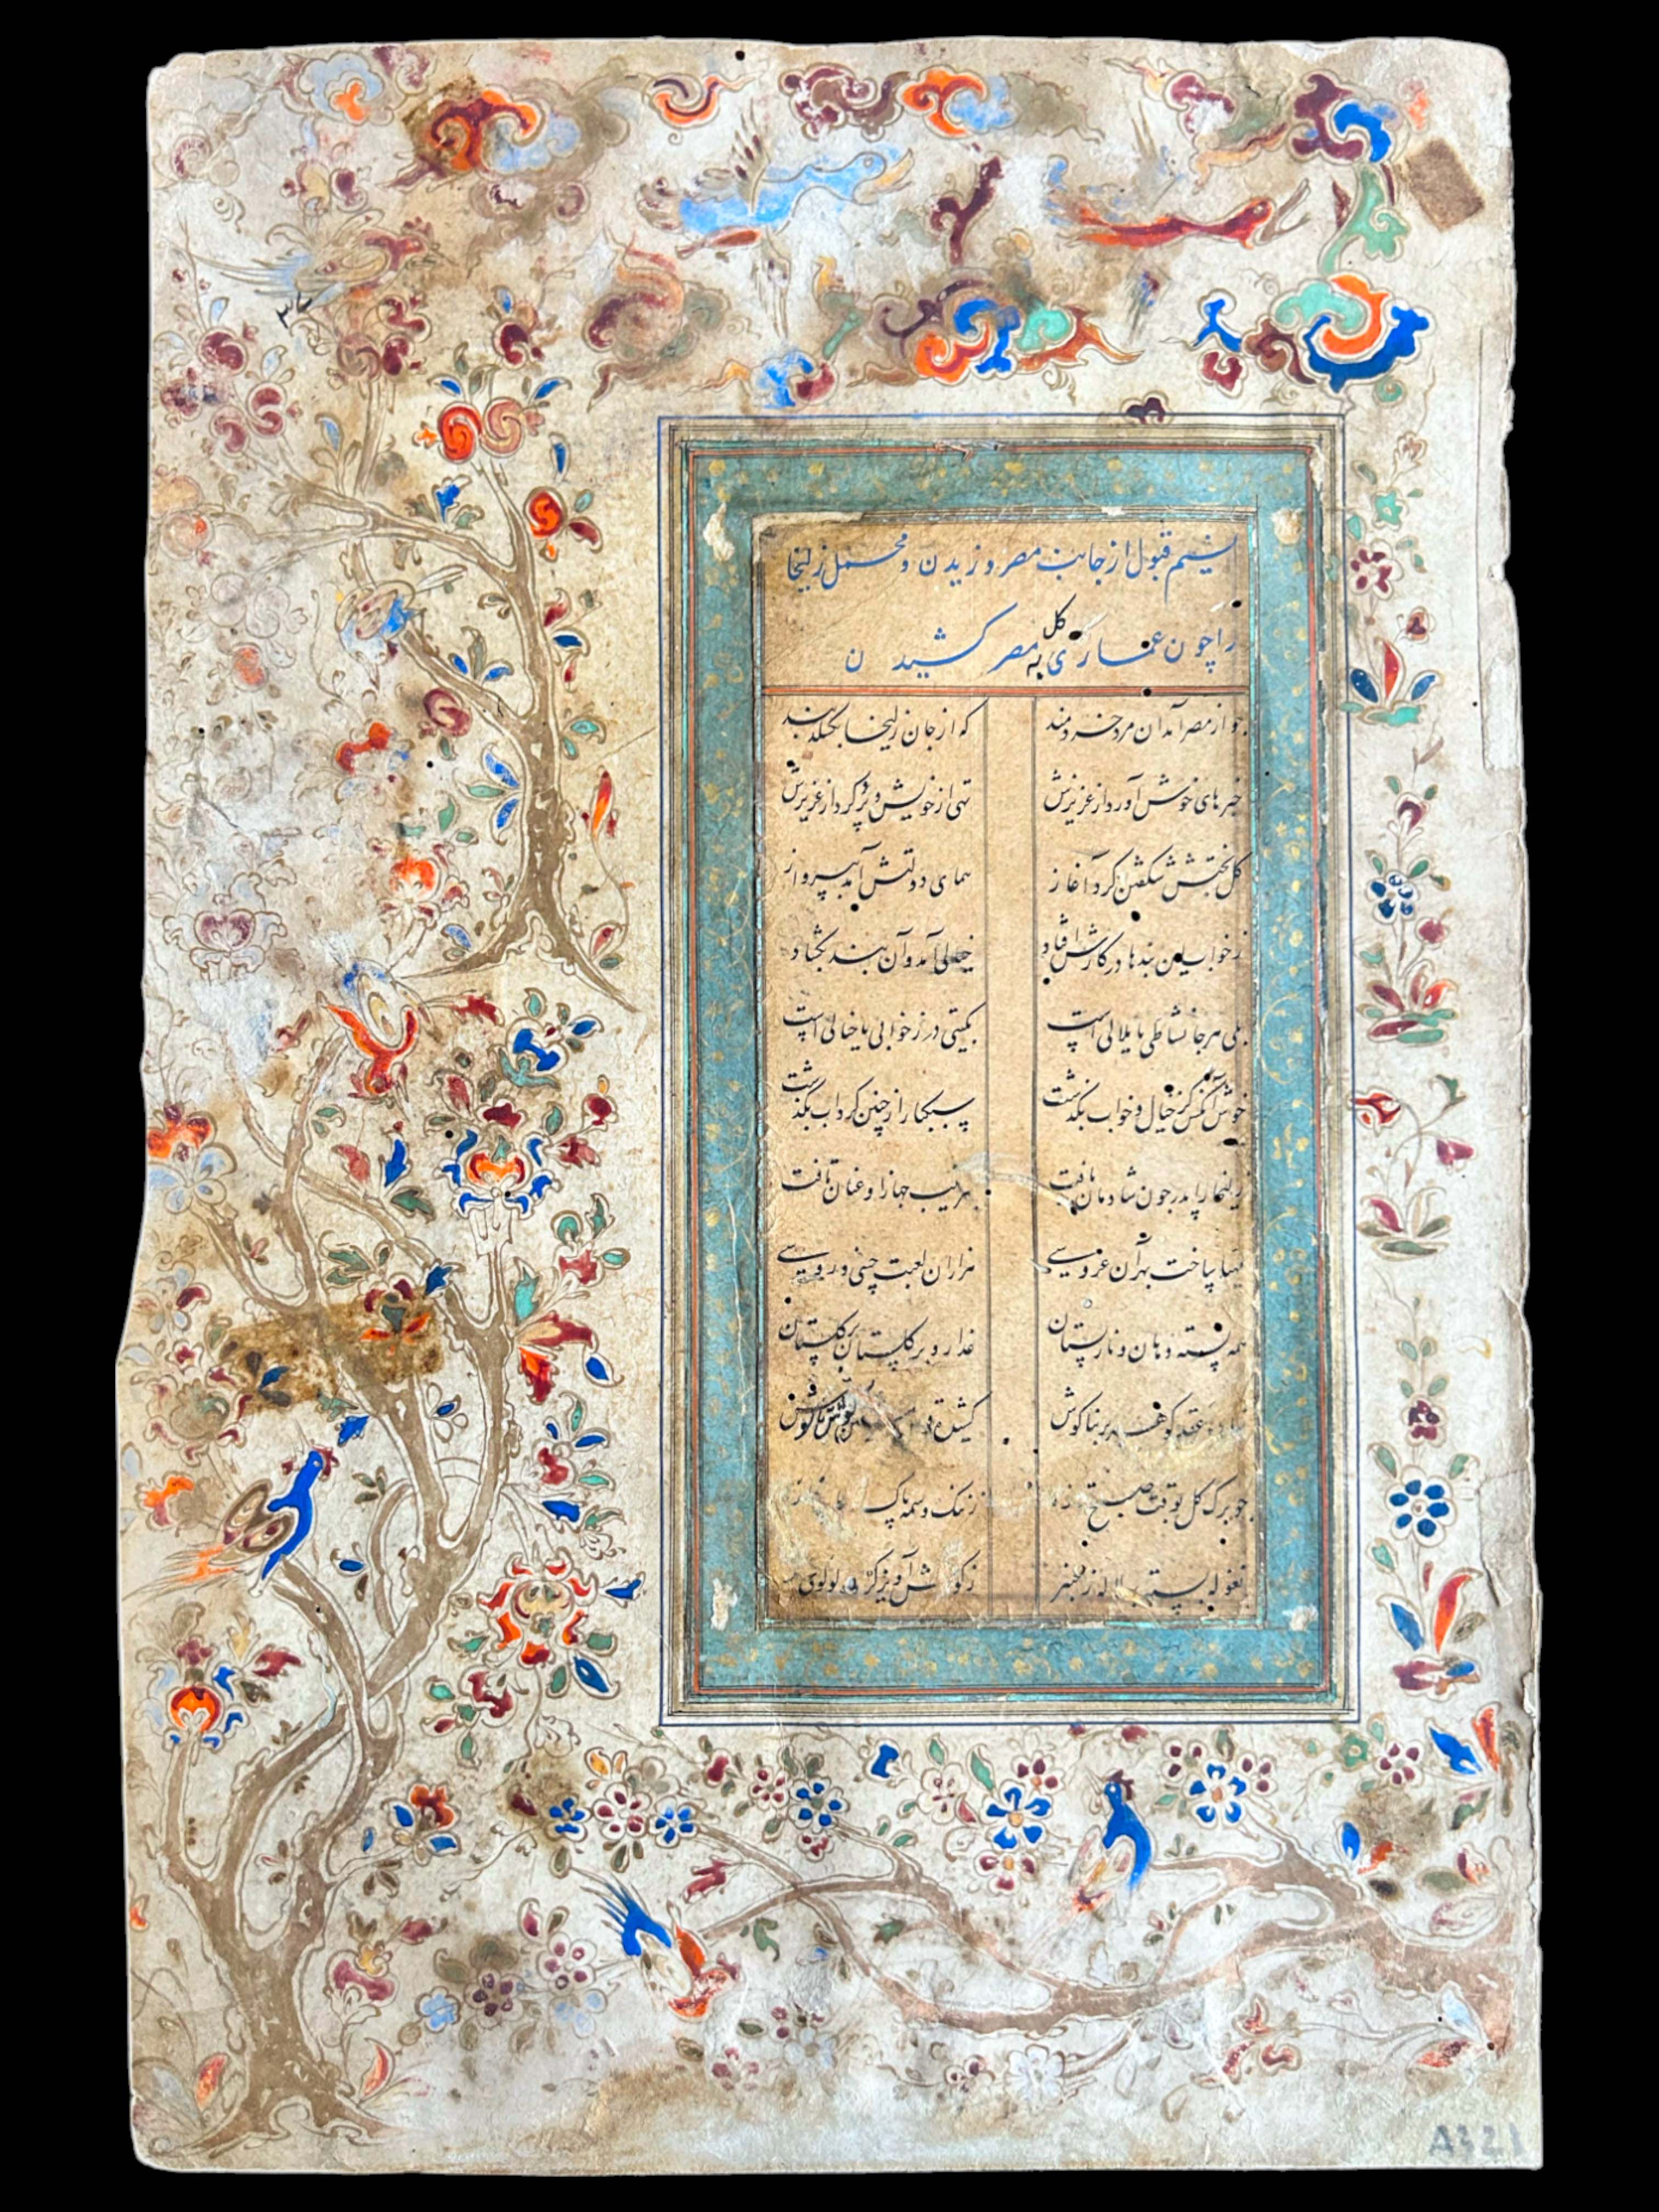 ۳۷
نسیم قبول از جانب مصر وزیدن و محمل زلیخا
را چون عماری گل به مصر کشیدن
چو از مصر آمد آن مرد خردمند
که از جان زلیخا بگسلد بند
خبرهای خوش آورد از عزیزش
تهی از خویش و پر کرد از عزیزش
گل بختش شکفتن کرد آغاز
همای دولتش آمد بپرواز
ز خواب بندها در کارش افتاد
خیالی آمد و آن بند بگشاد
بلی هر جا نشاطی یا ملالی است
بگیتی در ز خوابی یا خیالی است
خوش آنکس کز خیال و خواب بگذشت
سبکبار از چنین گرداب بگذشت
زلیخا را پدر چون شادمان یافت
بترتیب جهاز او عنان تافت
مهیا ساخت بهر آن عروسی
هزاران لعبت چینی و روسی
همه پسته دهان و نار پستان
عذار و بر گلستان بر گلستان
عقد گوهر بر بناگوش
کشیده
چو برگ گل بوقت صبح
ز ننگ وسمه پاک
نغوله بسته بر لاله ز عنبر
ز گوش آویز کرده لولوی
A321